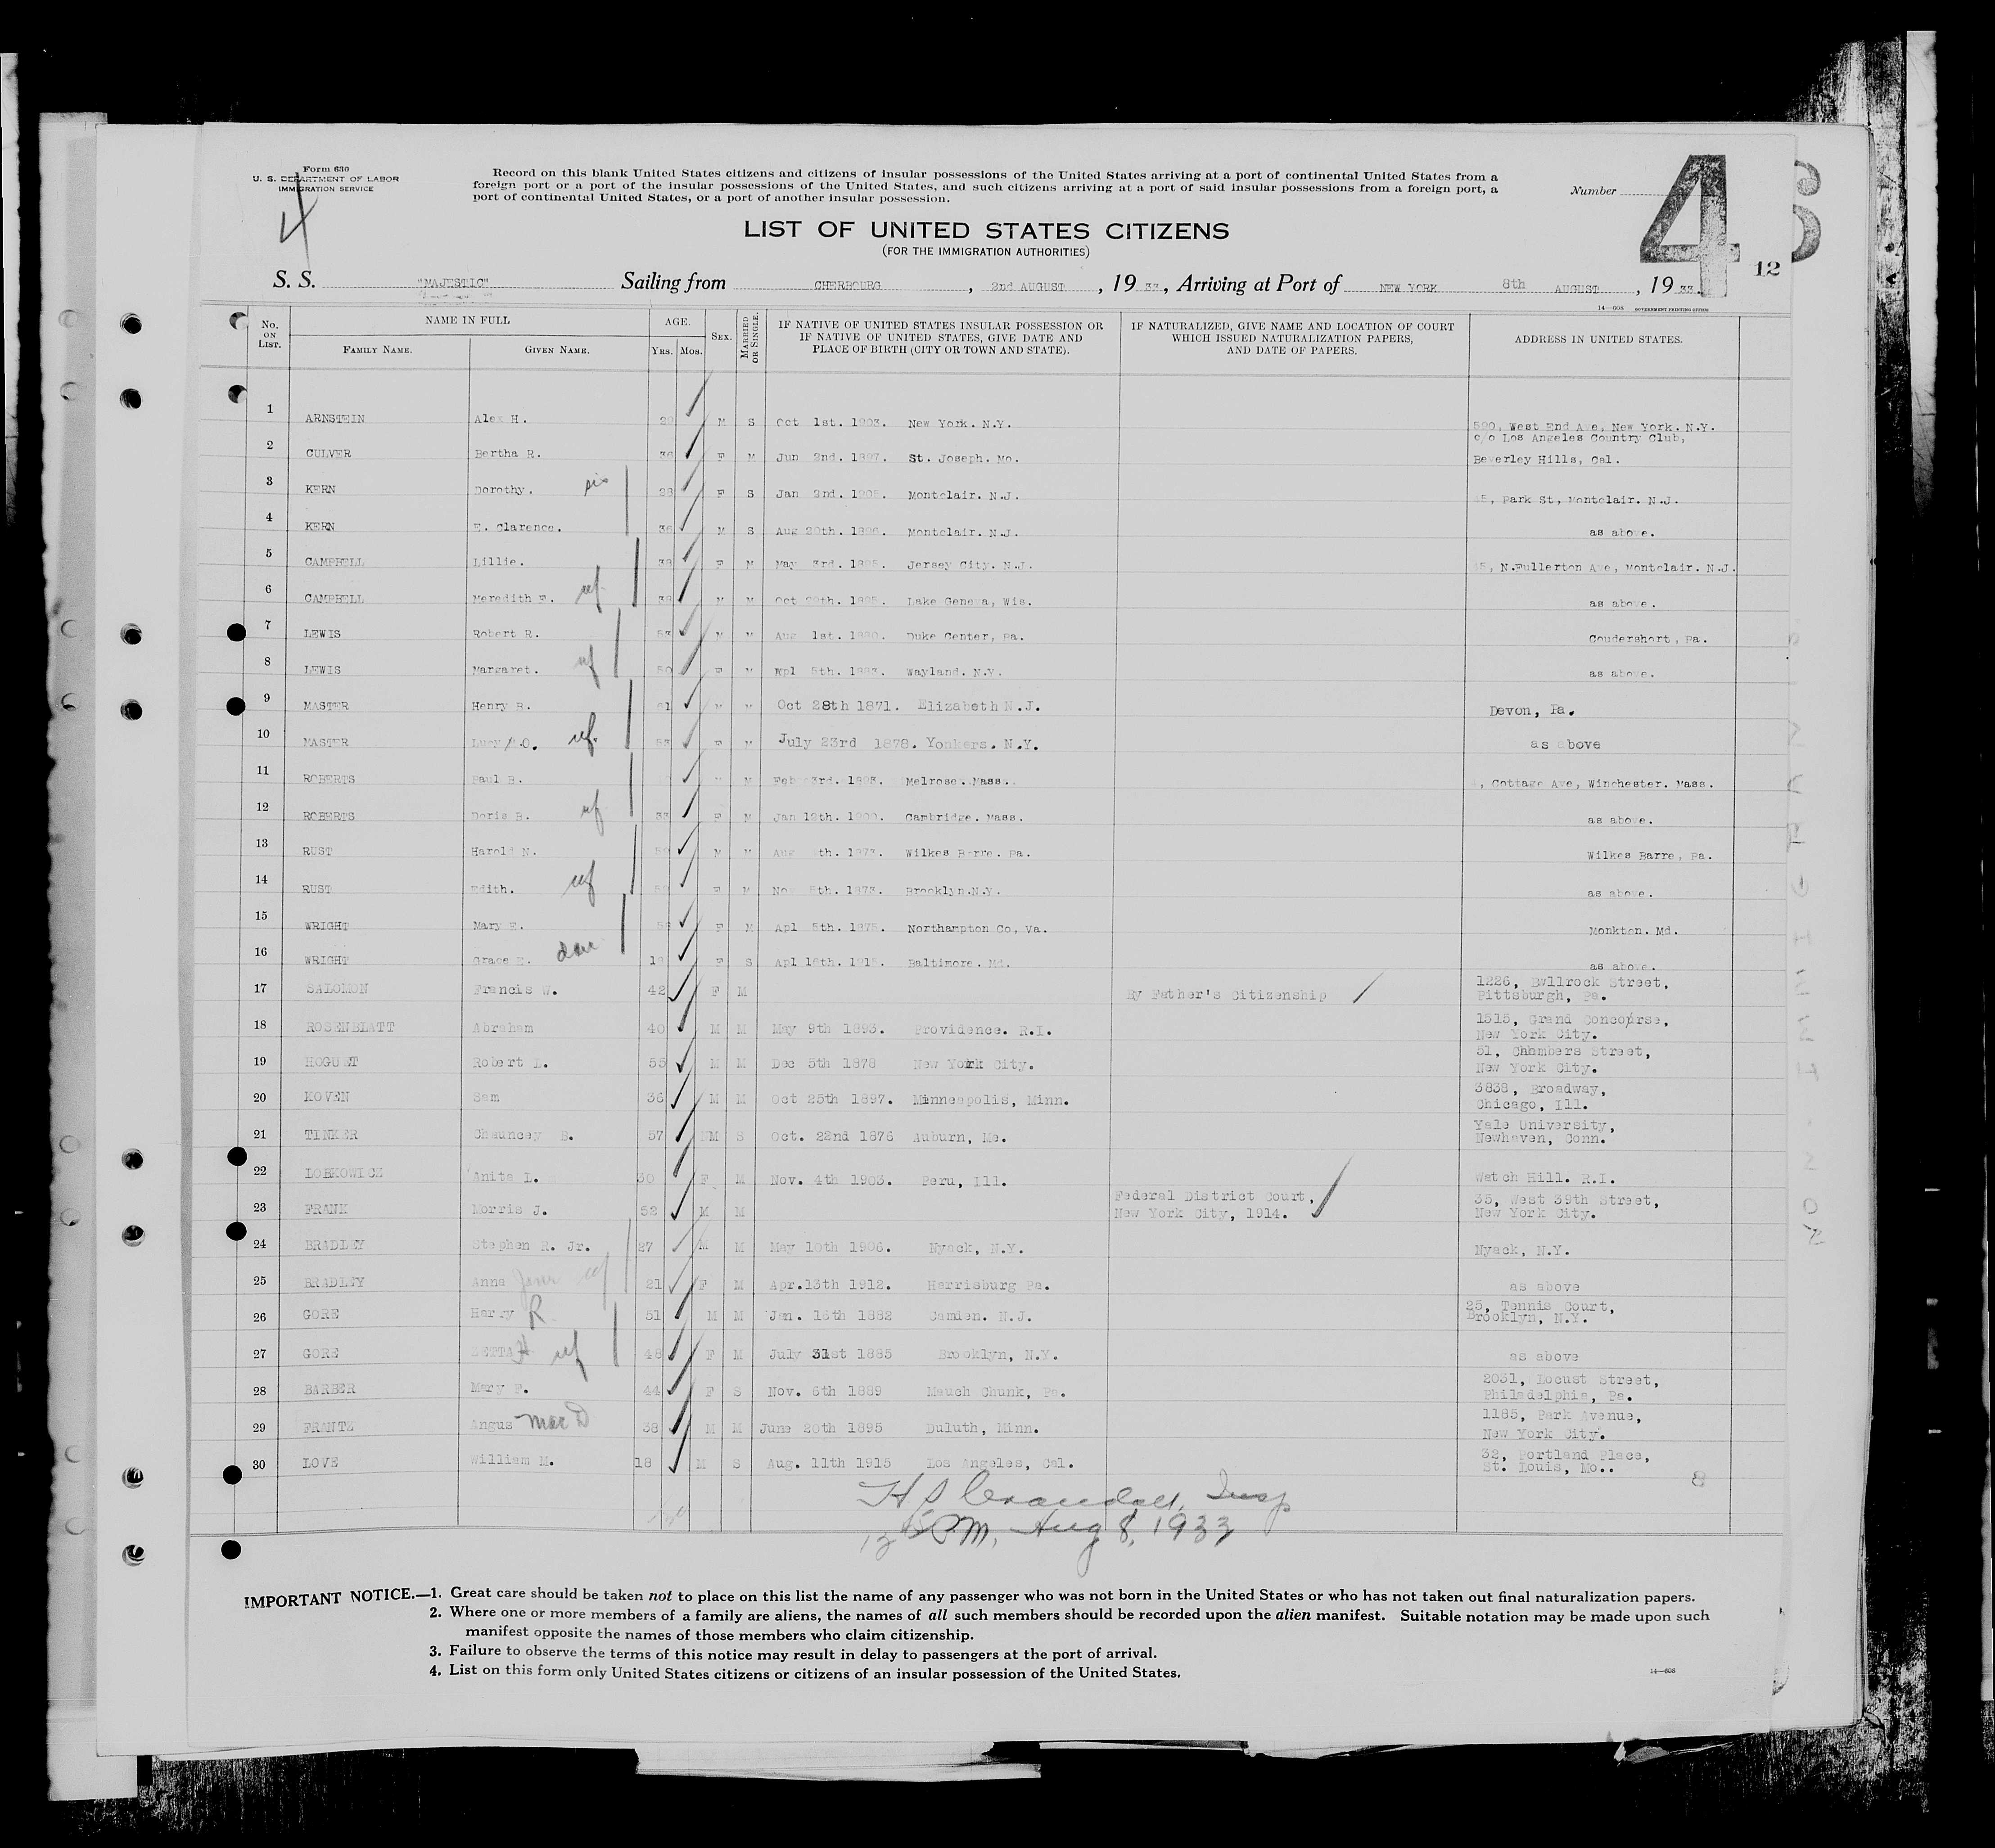 Form 630
U. S. DEPARTMENT OF LABOR
IMMIGRATION SERVICE
4
Record on this blank United States citizens and citizens of insular possessions of the United States arriving at a port of continental United States from a
foreign port or a port of the insular possessions of the United States, and such citizens arriving at a port of said insular possessions from a foreign port, a
port of continental United States, or a port of another insular possession.
Number
4
6
12
LIST OF UNITED STATES CITIZENS
(FOR THE IMMIGRATION AUTHORITIES)
S. S. "MAJESTIC" Sailing from CHERBOURG, 2nd AUGUST, 19 33, Arriving at Port of NEW YORK 8th AUGUST, 19 33
14—608 GOVERNMENT PRINTING OFFICE
No. ON LIST. NAME IN FULL FAMILY NAME. GIVEN NAME. AGE. YRS. MOS. SEX. MARRIED OR SINGLE. IF NATIVE OF UNITED STATES INSULAR POSSESSION OR IF NATIVE OF UNITED STATES, GIVE DATE AND PLACE OF BIRTH (CITY OR TOWN AND STATE). IF NATURALIZED, GIVE NAME AND LOCATION OF COURT WHICH ISSUED NATURALIZATION PAPERS, AND DATE OF PAPERS. ADDRESS IN UNITED STATES.
1 ARNSTEIN Alex H. 29 M S Oct 1st. 1903. New York. N.Y. West End Ave, New York. N.Y.
2 CULVER Bertha R. 36 F M Jun 2nd. 1897. St. Joseph. Mo. c/o Los Angeles Country Club, Beverley Hills, Cal.
3 KERN Dorothy. sis 28 F S Jan 2nd. 1905. Montclair. N.J. Park St, Montclair. N.J.
4 KERN E. Clarence. 36 M S Aug 20th. 1896. Montclair. N.J. as above.
5 CAMPBELL Lillie. 38 F M May 3rd. 1895. Jersey City. N.J. N.Fullerton Ave, Montclair. N.J.
6 CAMPBELL Meredith F. wf 38 M M Oct 1895. Lake Geneva, Wis. as above.
7 LEWIS Robert R. 53 M M Aug 1st. 1880. Duke Center, Pa. Coudershort, Pa.
8 LEWIS Margaret. wf 50 F M Apl 5th. 1883. Wayland. N.Y. as above.
9 MASTER Henry B. 61 M M Oct 28th 1871. Elizabeth N.J. Devon, Pa.
10 MASTER Lucy O. wf. 53 F M July 23rd 1878. Yonkers. N.Y. as above
11 ROBERTS Paul B. M Feb 3rd. 1893. Melrose. Mass. Cottage Ave, Winchester. Mass.
12 ROBERTS Doris B. wf 33 F M Jan 12th. 1900. Cambridge. Mass. as above.
13 RUST Harold N. M M Aug 1873. Wilkes Barre. Pa. Wilkes Barre, Pa.
14 RUST Edith. wf F M Nov 5th. 1873. Brooklyn.N.Y. as above.
15 WRIGHT Mary E. F M Apl 5th. 1875. Northampton Co, Va. Monkton. Md.
16 WRIGHT Grace E. dau 18 F S Apl 16th. 1915. Baltimore. Md. as above.
17 SALOMON Francis W. 42 F M By Father's Citizenship 1226, Bullrock Street, Pittsburgh, Pa.
18 ROSENBLATT Abraham 40 M M May 9th 1893. Providence. R.I. 1515, Grand Concourse, New York City.
19 HOGUET Robert L. 55 M M Dec 5th 1878 New York City. 51, Chambers Street, New York City.
20 KOVEN Sam 36 M M Oct 25th 1897. Minneapolis, Minn. 3838, Broadway, Chicago, Ill.
21 TINKER Chauncey B. 57 M S Oct. 22nd 1876 Auburn, Me. Yale University, Newhaven, Conn.
22 LOBKOWICZ Anita L. 30 F M Nov. 4th 1903. Peru, Ill. Watch Hill. R.I.
23 FRANK Morris J. 52 M M Federal District Court, New York City, 1914. 35, West 39th Street, New York City.
24 BRADLEY Stephen R. Jr. 27 M M May 10th 1906. Nyack, N.Y. Nyack, N.Y.
25 BRADLEY Anna Jane wf 21 F M Apr.13th 1912. Harrisburg Pa. as above
26 GORE Harry R 51 M M Jan. 16th 1882 Camden. N.J. 25, Tennis Court, Brooklyn, N.Y.
27 GORE ZETTA H wf 48 F M July 31st 1885 Brooklyn, N.Y. as above
28 BARBER Mary F. 44 F S Nov. 6th 1889 Mauch Chunk, Pa. 2031, Locust Street, Philadelphia, Pa.
29 FRANTZ Angus Mac D 38 M M June 20th 1895 Duluth, Minn. 1185, Park Avenue, New York City.
30 LOVE William M. 18 M S Aug. 11th 1915 Los Angeles, Cal. 32, Portland Place, St. Louis, Mo..
8
H S Crandall, Insp
12 45 P.M. Aug 8, 1933
IMPORTANT NOTICE.—1. Great care should be taken not to place on this list the name of any passenger who was not born in the United States or who has not taken out final naturalization papers.
2. Where one or more members of a family are aliens, the names of all such members should be recorded upon the alien manifest. Suitable notation may be made upon such
manifest opposite the names of those members who claim citizenship.
3. Failure to observe the terms of this notice may result in delay to passengers at the port of arrival.
4. List on this form only United States citizens or citizens of an insular possession of the United States.
14—608